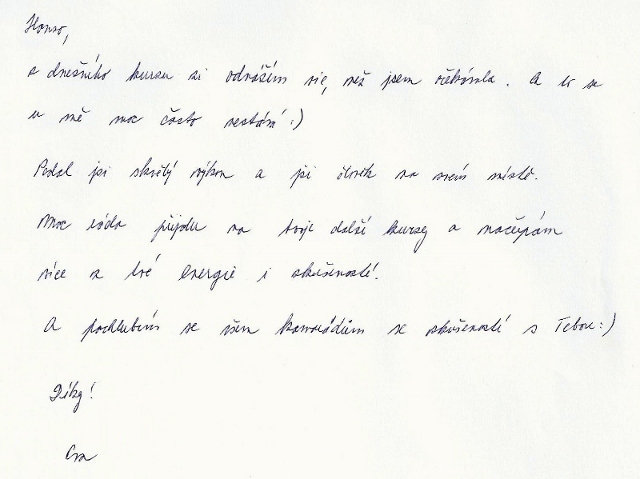 Honzo,
z dnešního kursu si odnáším víc, než jsem očekávala. A to se
u mě moc často nestává :)
Podal jsi skvělý výkon a jsi člověk na svém místě.
Moc ráda přijdu na tvoje další kursy a načerpám
více z tvé energie i zkušeností.
A pochlubím se všem kamarádům se zkušeností s Tebou :)
Díky!
Eva